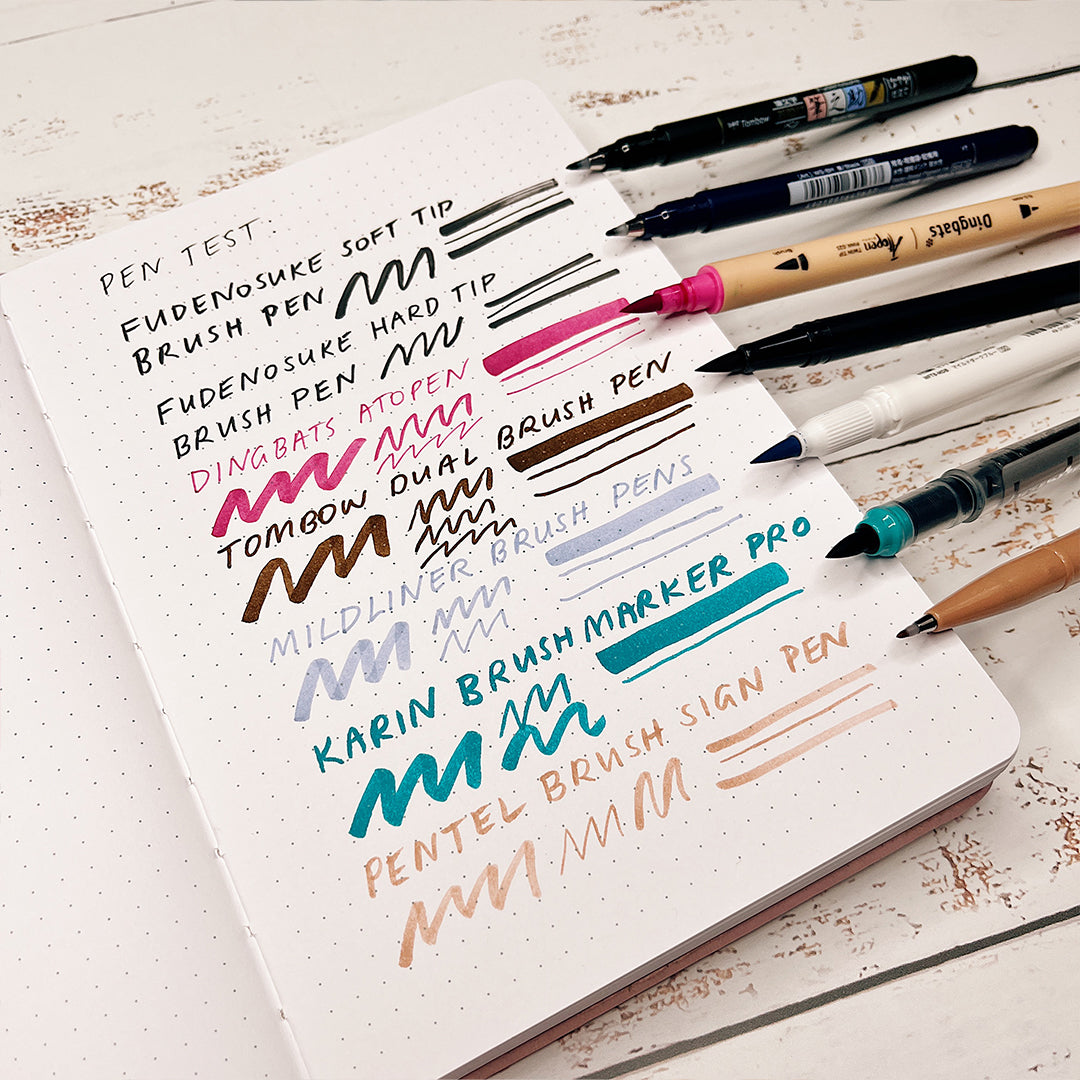 PEN TEST:
FUDENOSUKE SOFT TIP
BRUSH PEN
FUDENOSUKE HARD TIP
BRUSH PEN
DINGBATS ATOPEN
TOMBOW DUAL BRUSH PEN
MILDLINER BRUSH PENS
KARIN BRUSH MARKER PRO
PENTEL BRUSH SIGN PEN
Tombow
Dingbats
Atopen
TWIN TIP
Brush